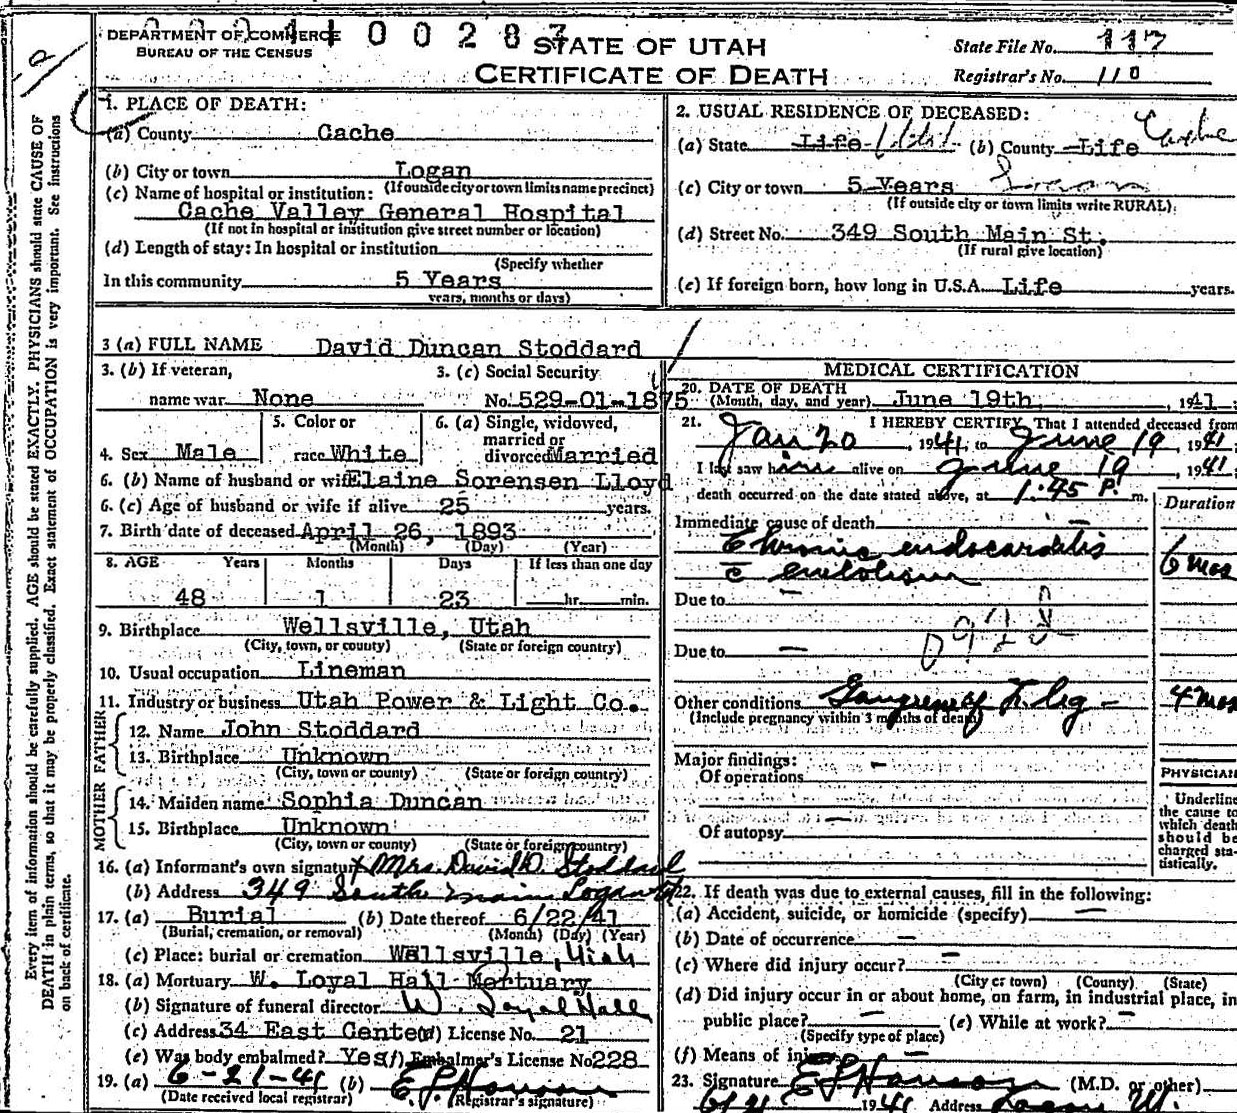 DEPARTMENT OF COMMERCE
BUREAU OF THE CENSUS
0 0 2 8 7
STATE OF UTAH
CERTIFICATE OF DEATH
State File No. 117
Registrar's No. 110
1. PLACE OF DEATH:
(a) County Cache
(b) City or town Logan
(If outside city or town limits name precinct)
(c) Name of hospital or institution:
Cache Valley General Hospital
(If not in hospital or institution give street number or location)
(d) Length of stay: In hospital or institution
(Specify whether
In this community 5 Years
years, months or days)
2. USUAL RESIDENCE OF DECEASED:
(a) State Life Utah (b) County Life Cache
(c) City or town 5 Years Logan
(If outside city or town limits write RURAL)
(d) Street No. 349 South Main St.
(If rural give location)
(e) If foreign born, how long in U.S.A. Life years.
3 (a) FULL NAME David Duncan Stoddard
3. (b) If veteran,
name war None
3. (c) Social Security
No. 529-01-1875
4. Sex Male
5. Color or
race White
6. (a) Single, widowed,
married or
divorced Married
6. (b) Name of husband or wife Elaine Sorensen Lloyd
6. (c) Age of husband or wife if alive 25 years.
7. Birth date of deceased April 26, 1893
(Month) (Day) (Year)
8. AGE Years Months Days If less than one day
48 1 23 hr. min.
9. Birthplace Wellsville, Utah
(City, town, or county) (State or foreign country)
10. Usual occupation Lineman
11. Industry or business Utah Power & Light Co.
FATHER
12. Name John Stoddard
13. Birthplace Unknown
(City, town or county) (State or foreign country)
MOTHER
14. Maiden name Sophia Duncan
15. Birthplace Unknown
(City, town or county) (State or foreign country)
16. (a) Informant's own signature x Mrs. David D. Stoddard
(b) Address 349 South Main Logan Ut
17. (a) Burial (b) Date thereof 6/22/41
(Burial, cremation, or removal) (Month) (Day) (Year)
(c) Place: burial or cremation Wellsville, Utah
18. (a) Mortuary W. Loyal Hall Mortuary
(b) Signature of funeral director W. Loyal Hall
(c) Address 34 East Center (d) License No. 21
(e) Was body embalmed? Yes (f) Embalmer's License No 228
19. (a) 6-21-41 (b)
(Date received local registrar) (Registrar's signature)
MEDICAL CERTIFICATION
20. DATE OF DEATH
(Month, day, and year) June 19th, 1941.
21. I HEREBY CERTIFY, That I attended deceased from
Jan 20, 1941, to June 19, 1941.
I last saw him alive on June 19, 1941
death occurred on the date stated above, at 1:45 P. m.
Duration
Immediate cause of death
Chronic endocarditis
c̄ embolism
6 mos
Due to —
Due to —
Other conditions Gangrene of L leg -
(Include pregnancy within 3 months of death)
4 mos
Major findings:
Of operations —
Of autopsy —
PHYSICIAN
Underline
the cause to
which death
should be
charged sta-
tistically.
22. If death was due to external causes, fill in the following:
(a) Accident, suicide, or homicide (specify) —
(b) Date of occurrence —
(c) Where did injury occur? —
(City or town) (County) (State)
(d) Did injury occur in or about home, on farm, in industrial place, in
public place? — (e) While at work? —
(Specify type of place)
(f) Means of injury —
23. Signature (M.D. or other)
1941 Address Logan
Every item of information should be carefully supplied. AGE should be stated EXACTLY. PHYSICIANS should state CAUSE OF
DEATH in plain terms, so that it may be properly classified. Exact statement of OCCUPATION is very important. See instructions
on back of certificate.